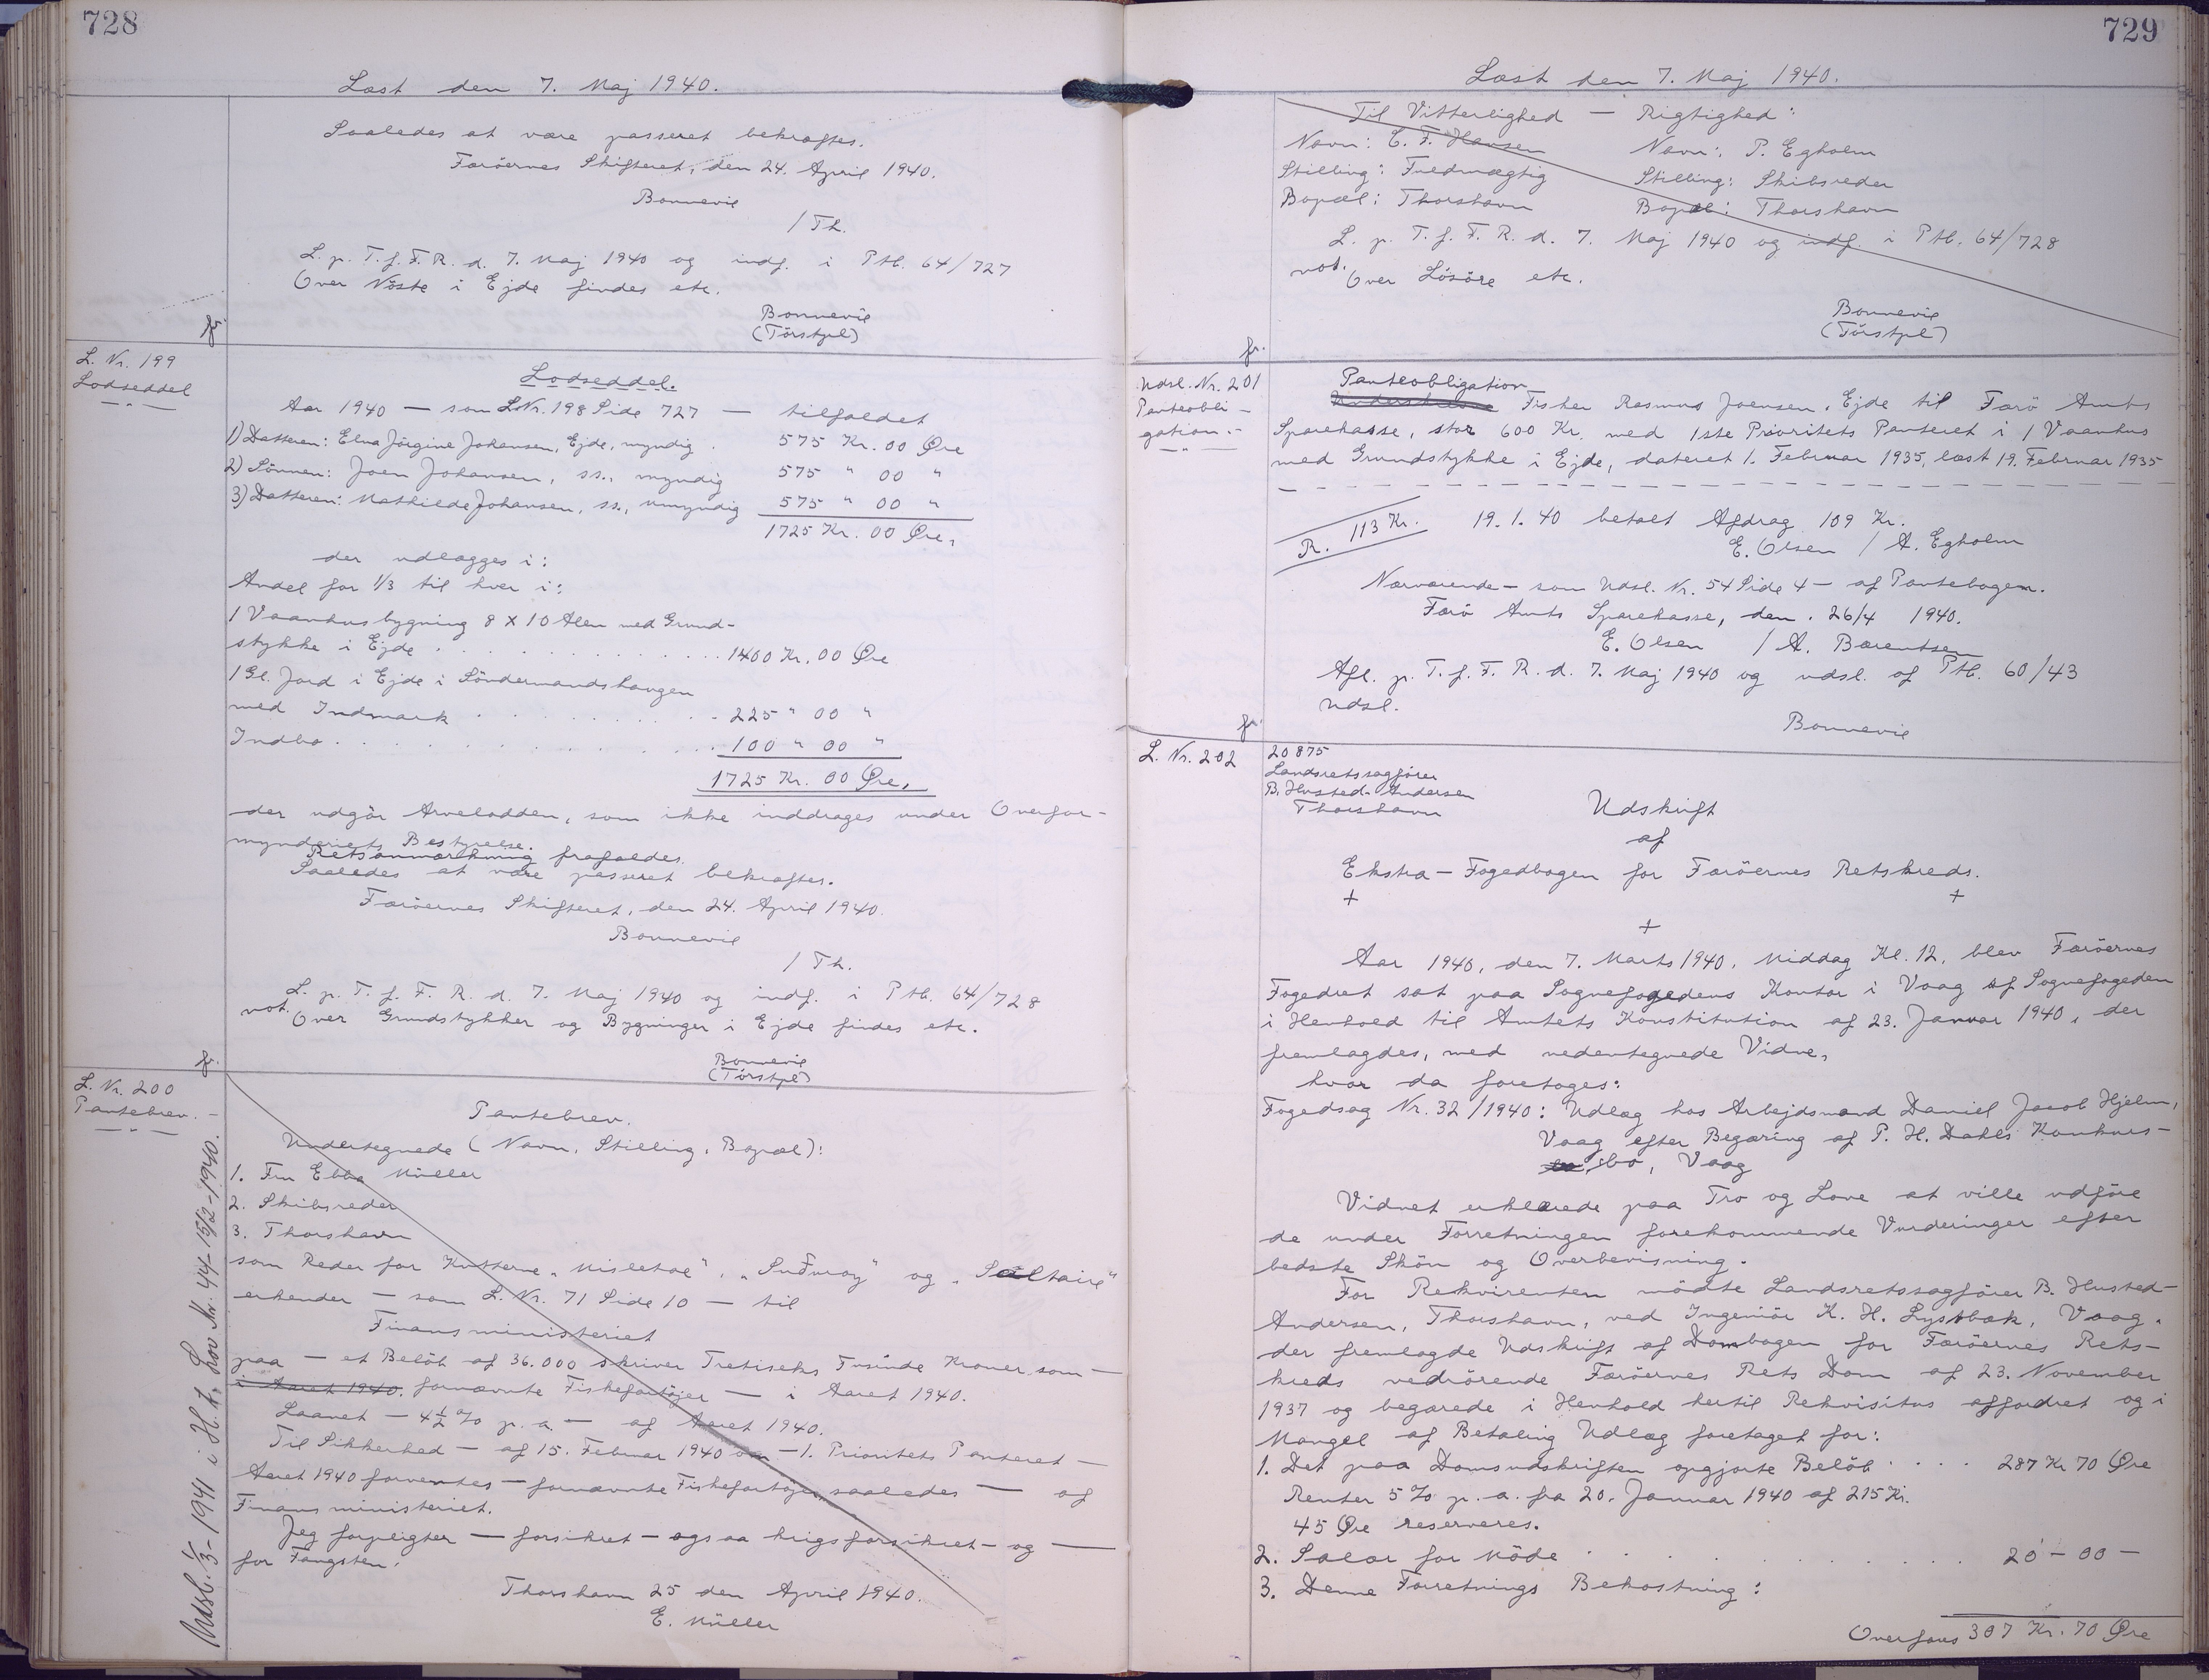 728
Læst den 7. Maj 1940.
Saaledes at være passeret bekræftes.
Færöernes Skifteret, den 24. April 1940.
Bonnevie
/ Th.
L. p. T. f. F. R. d. 7. Maj 1940 og indf. i Ptb. 64/727
Over Nöste i Ejde findes etc.
Bonnevie
(Törstpl)
fr.
L. Nr. 199
Lodseddel
Lodseddel.
Aar 1940 — som L.Nr. 198 Side 727 — tilfaldet
1) Datteren: Elna Jörgine Johansen, Ejde, myndig . 575 Kr. 00 Øre
2) Sönnen: Joen Johansen, ss., myndig 575 " 00 "
3) Datteren: Mathilde Johansen, ss., umyndig 575 " 00 "
1725 Kr. 00 Øre,
der udlægges i:
Andel for 1/3 til hver i:
1 Vaanhusbygning 8 x 10 Alen med Grund-
stykke i Ejde . . . . . . . . . . . 1400 Kr. 00 Øre
1 Gl. Jord i Ejde i Söndermandshaugen
med Indmark . . . . . . . . . . 225 " 00 "
Indbo . . . . . . . . . . . . . 100 " 00 "
1725 Kr. 00 Øre,
der udgör Arvelodden, som ikke inddrages under Overfor-
mynderiets Bestyrelse.
Retsanmærkning frafaldes.
Saaledes at være passeret bekræftes.
Færöernes Skifteret, den 24. April 1940.
Bonnevie
/ Th.
L. p. T. f. F. R. d. 7. Maj 1940 og indf. i Ptb. 64/728
not.
Over Grundstykker og Bygninger i Ejde findes etc.
Bonnevie
(Törstpl)
fr.
L. Nr. 200
Pantebrev. -
Pantebrev.
Undertegnede (Navn, Stilling, Bopæl):
1. Fru Ebba Müller
2. Skibsreder
3. Thorshavn
som Reder for Kutterne „Misletoe", „Suðuroy" og „Saltaire"
erkender — som L. Nr. 71 Side 10 — til
Finansministeriet
paa — et Beløb af 36.000 skriver Tretiseks Tusinde Kroner som —
i Aaret 1940. fornævnte Fiskefartöjer — i Aaret 1940.
Laanet — 4½ % p. a. — af Aaret 1940.
Til Sikkerhed — af 15. Februar 1940 om — 1. Prioritets Panteret —
Aaret 1940 forventes — fornævnte Fiskefartöjer, saaledes — af
Finansministeriet.
Jeg forpligter — forsikret — ogsaa krigsforsikret — og —
for Fangsten.
Thorshavn 25 den April 1940.
E. Müller
Udsl. 1/3-1941 i H. t. Lov Nr. 44-15/2-1940.
729
Læst den 7. Maj 1940.
Til Vitterlighed — Rigtighed:
Navn: E. F. Hansen Navn: P. Egholm
Stilling: Fuldmægtig Stilling: Skibsreder
Bopæl: Thorshavn Bopæl: Thorshavn
L. p. T. f. F. R. d. 7. Maj 1940 og indf. i Ptb. 64/728
not.
Over Lösöre etc.
Bonnevie
(Törstpl)
fr.
Udsl. Nr. 201
Panteobli-
gation.-
Panteobligation
Fisker Rasmus Joensen, Ejde til Færö Amts
Sparekasse, stor 600 Kr. med 1ste Prioritets Panteret i 1 Vaanhus
med Grundstykke i Ejde, dateret 1. Februar 1935, læst 19. Februar 1935
R. 113 Kr. 19. 1. 40 betalt Afdrag 109 Kr.
E. Olsen / A. Egholm
Nærværende — som Udsl. Nr. 54 Side 4 — af Pantebogen.
Færö Amts Sparekasse, den . 26/4 1940.
E. Olsen / A. Bærentsen
Afl. p. T. f. F. R. d. 7. Maj 1940 og udsl. af Ptb. 60/43
Udsl.
Bonnevie
fr.
L. Nr. 202
20875
Landsretssagfører
B. Husted-Andersen
Thorshavn
Udskrift
af
Ekstra-Fogedbogen for Færöernes Retskreds.
+ +
+
Aar 1940, den 7. Marts 1940, Middag Kl. 12, blev Færöernes
Fogedret sat paa Sognefogedens Kontor i Vaag af Sognefogeden
i Henhold til Amtets Konstitution af 23. Januar 1940, der
fremlagdes, med nedentegnede Vidne,
hvor da foretoges:
Fogedsag Nr. 32/1940: Udlæg hos Arbejdsmand Daniel Jacob Hjelm,
Vaag efter Begæring af P. H. Dahls Konkurs-
bo, Vaag
Vidnet erklærede paa Tro og Love at ville udføre
de under Forretningen forekommende Vurderinger efter
bedste Skön og Overbevisning.
For Rekvirenten mödte Landsretssagfører B. Husted-
Andersen, Thorshavn, ved Ingeniör K. H. Lystbæk, Vaag,
der fremlagde Udskrift af Dombogen for Færöernes Rets-
kreds vedrörende Færöernes Rets Dom af 23. November
1937 og begærede i Henhold hertil Rekvisitus affordret og i
Mangel af Betaling Udlæg foretaget for:
1. Det paa Domsudskriften opgjorte Belöb . . . . 287 Kr 70 Øre
Renter 5 % p. a. fra 20. Januar 1940 af 215 Kr.
45 Øre reserveres.
2. Salær for Möde . . . . . . . . . . 20 — 00 —
3. Denne Forretnings Bekostning:
Overføres 307 Kr. 70 Øre